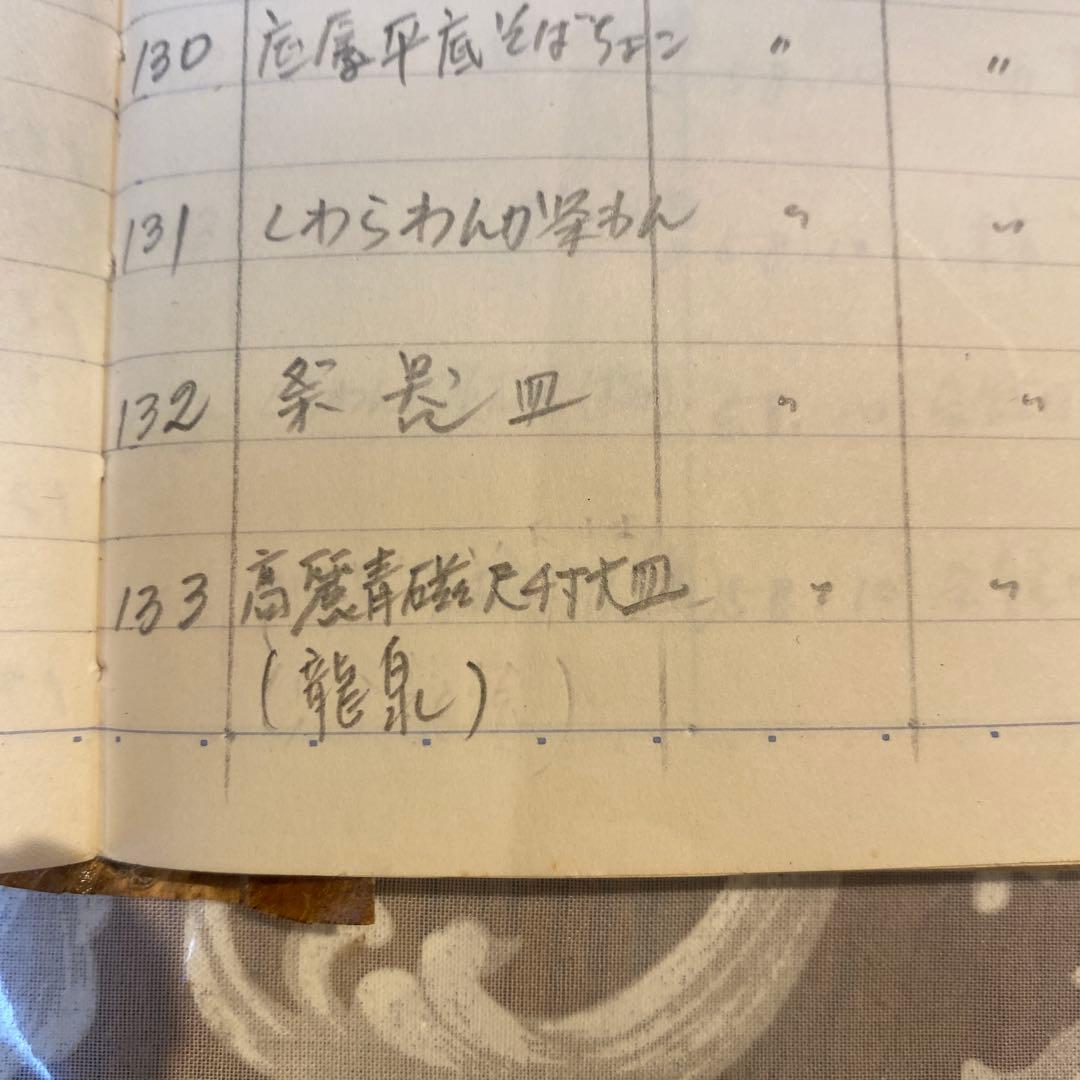 130 平底そばちょこ 〃 〃
131 くわらわんか茶わん 〃 〃
132 祭器皿 〃 〃
133 高麗青磁尺4寸大皿 〃 〃
(龍泉)